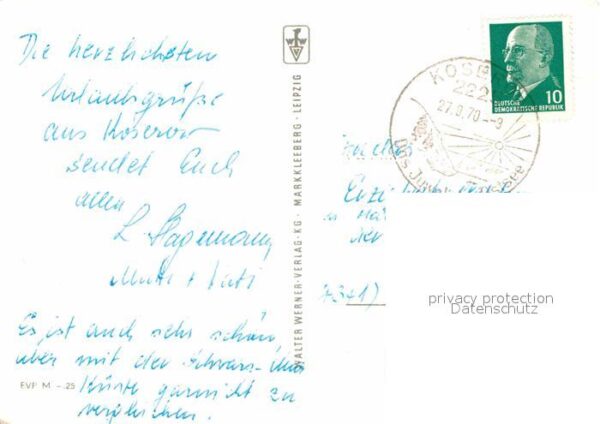 Die herzlichsten
Urlaubsgrüße
aus Koserow
sendet Euch
allen
L. Hagemann
Mutti + Vati
Es ist auch sehr schön,
aber mit der Schwarz-Meer
Küste garnicht zu
vergleichen.
EVP M -.25
WALTER WERNER-VERLAG-KG · MARKKLEEBERG · LEIPZIG
KOSE
222
27.8.70 -- 9
Ostsee
10
DEUTSCHE
DEMOKRATISCHE REPUBLIK
An die
der
7341)
privacy protection
Datenschutz